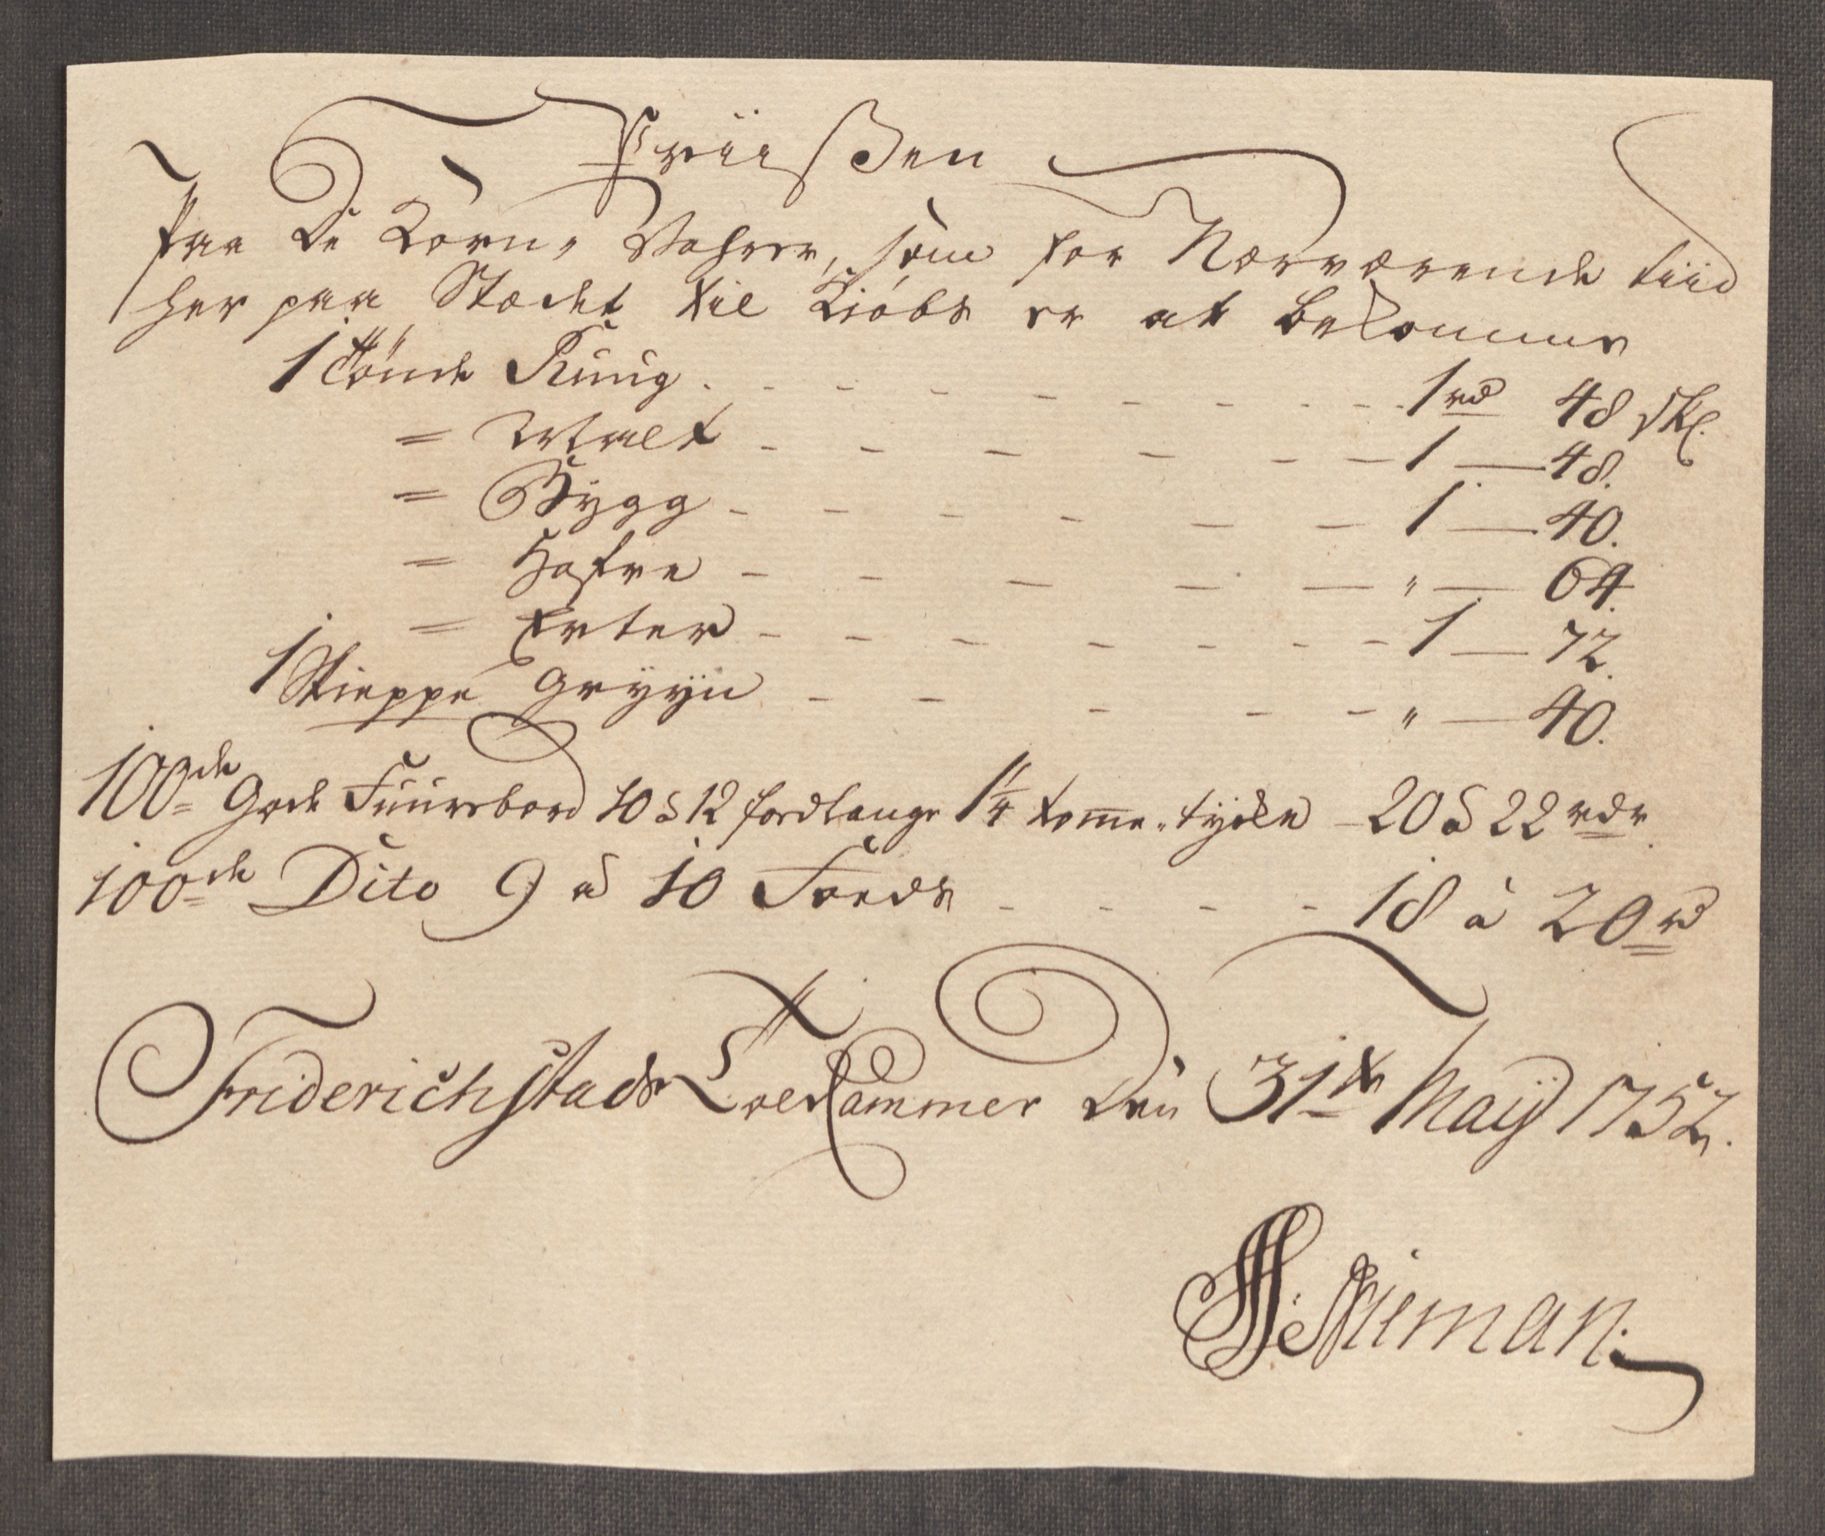 Priisßen
Paa De Korn, Vahrer, som for Nærværende tiid
her paa Stædet til Kiøbs er at bekomme
1 Tønde Ruug - - - 1 rd 48 skl.
= Malt - - - 1 — 48.
= Bygg - - - 1 — 40.
= Hafre - - - " — 64.
= Erter - - - 1 — 72.
1 Skieppe Gryyn - - - " — 40.
100de Gode Fuurebord 10 à 12 food lange 1¼ tomme tycke - 20 à 22 rdr.
100de Dito 9 à 10 Foeds - - - 18 à 20 rd
Friderichstads Toldkammer den 31te Maij 1752.